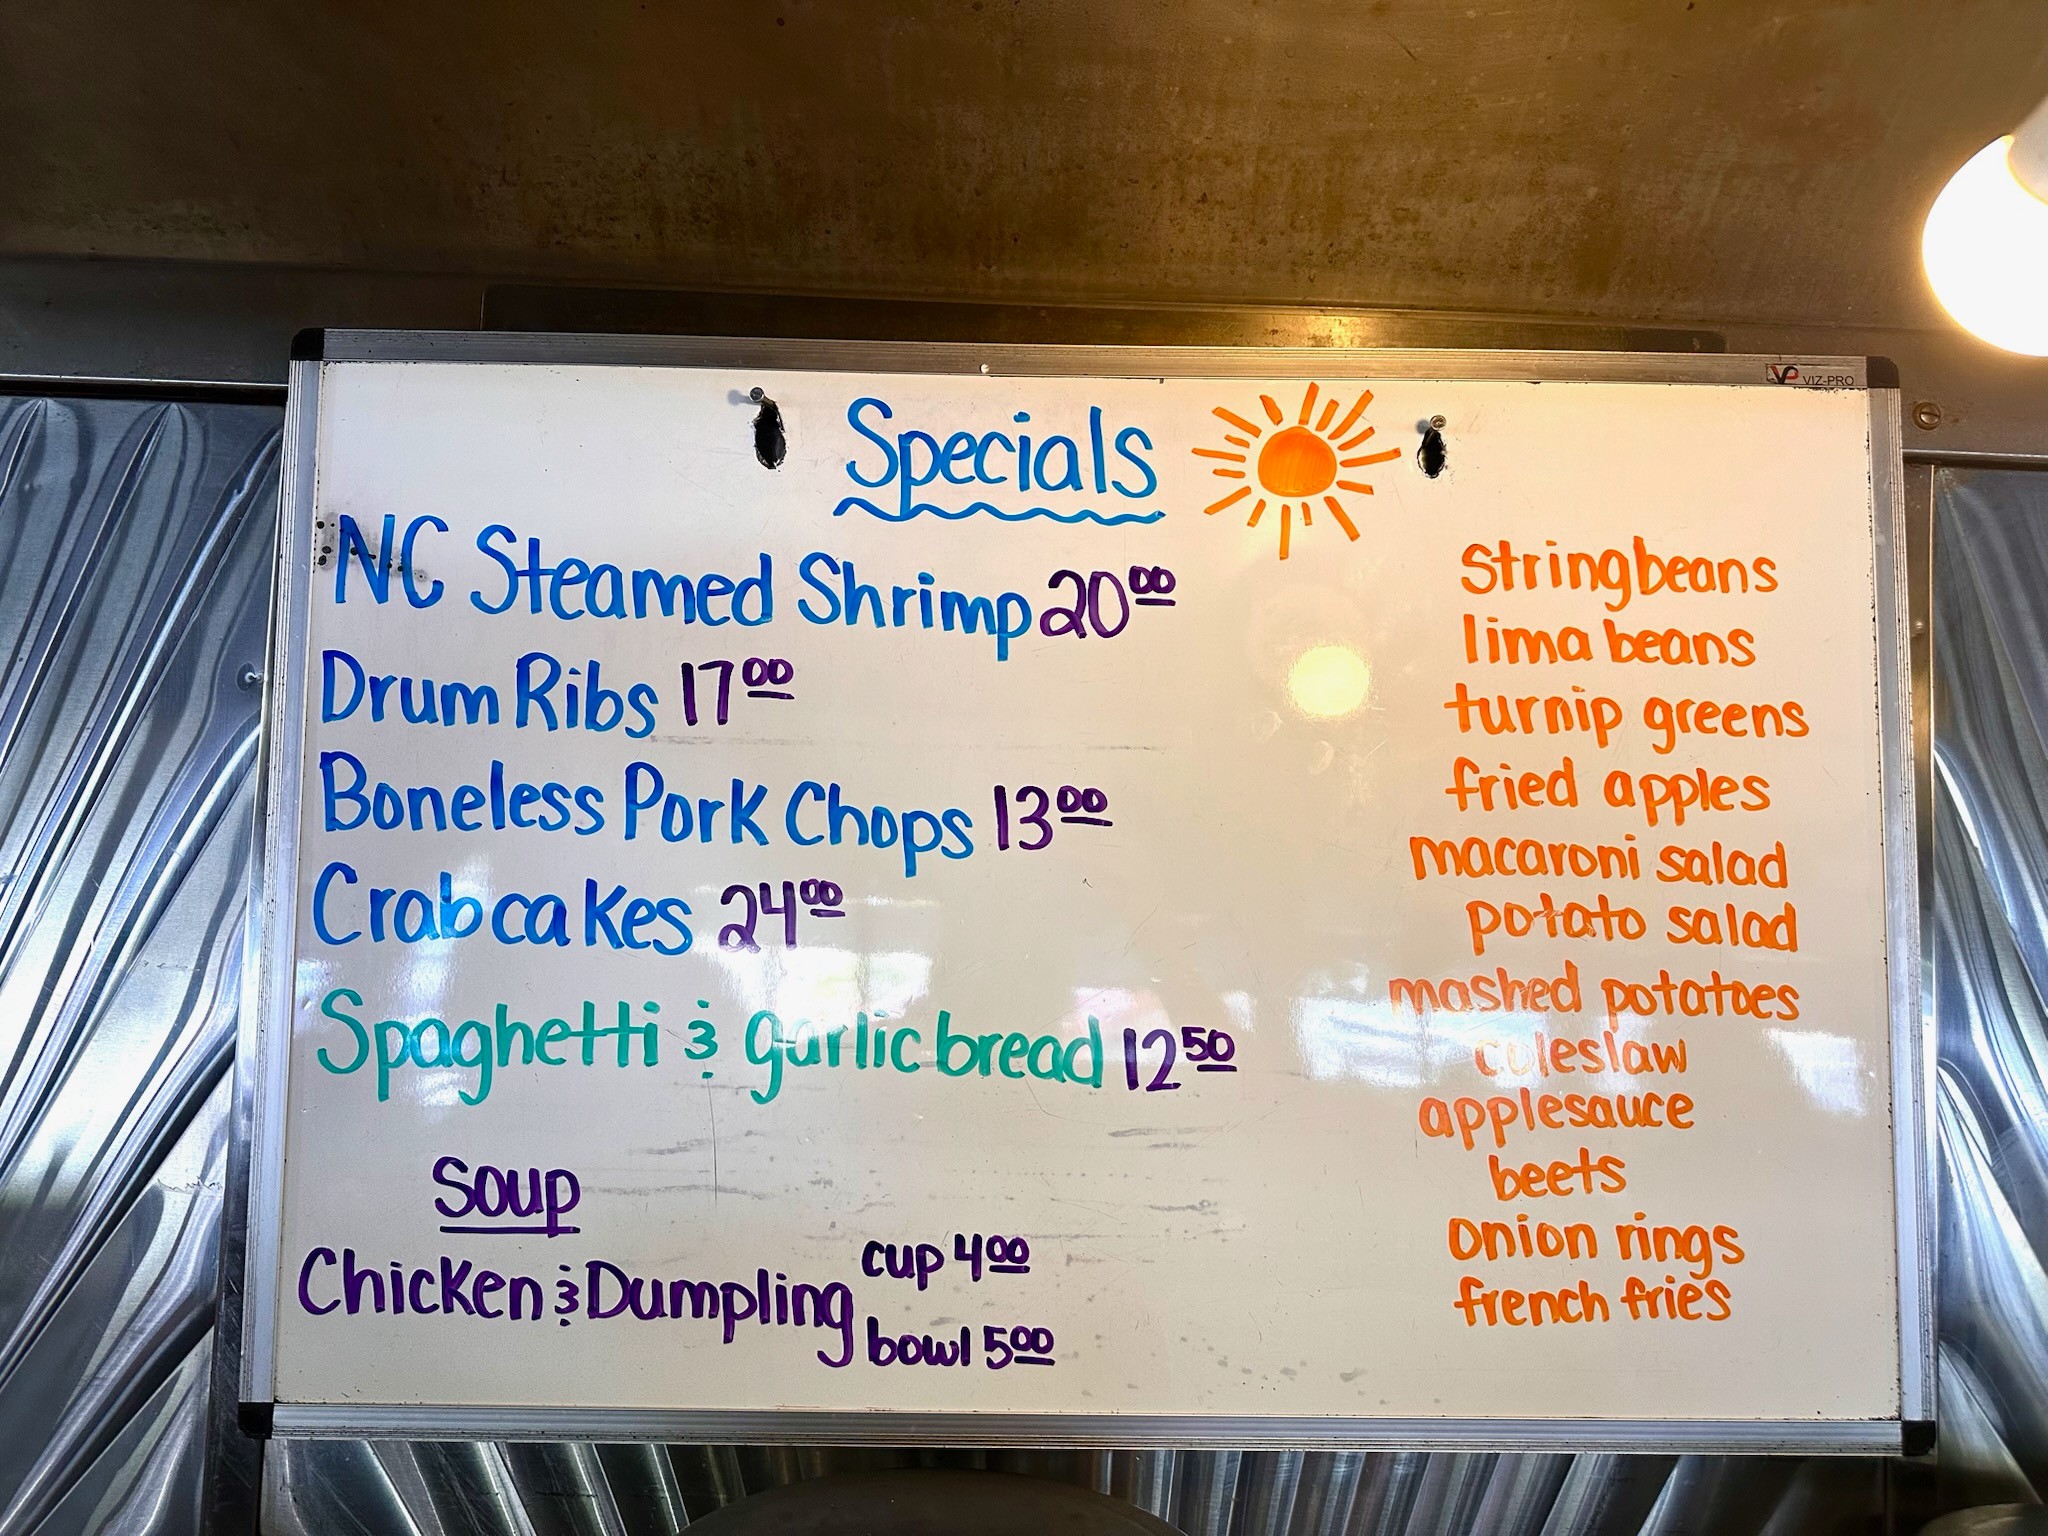 VP VIZ-PRO
Specials
NC Steamed Shrimp 20 00
Drum Ribs 17 00
Boneless Pork Chops 13 00
Crabcakes 24 00
Spaghetti & garlic bread 12 50
Soup
Chicken & Dumpling
cup 4 00
bowl 5 00
Stringbeans
lima beans
turnip greens
fried apples
macaroni salad
potato salad
mashed potatoes
coleslaw
applesauce
beets
onion rings
french fries